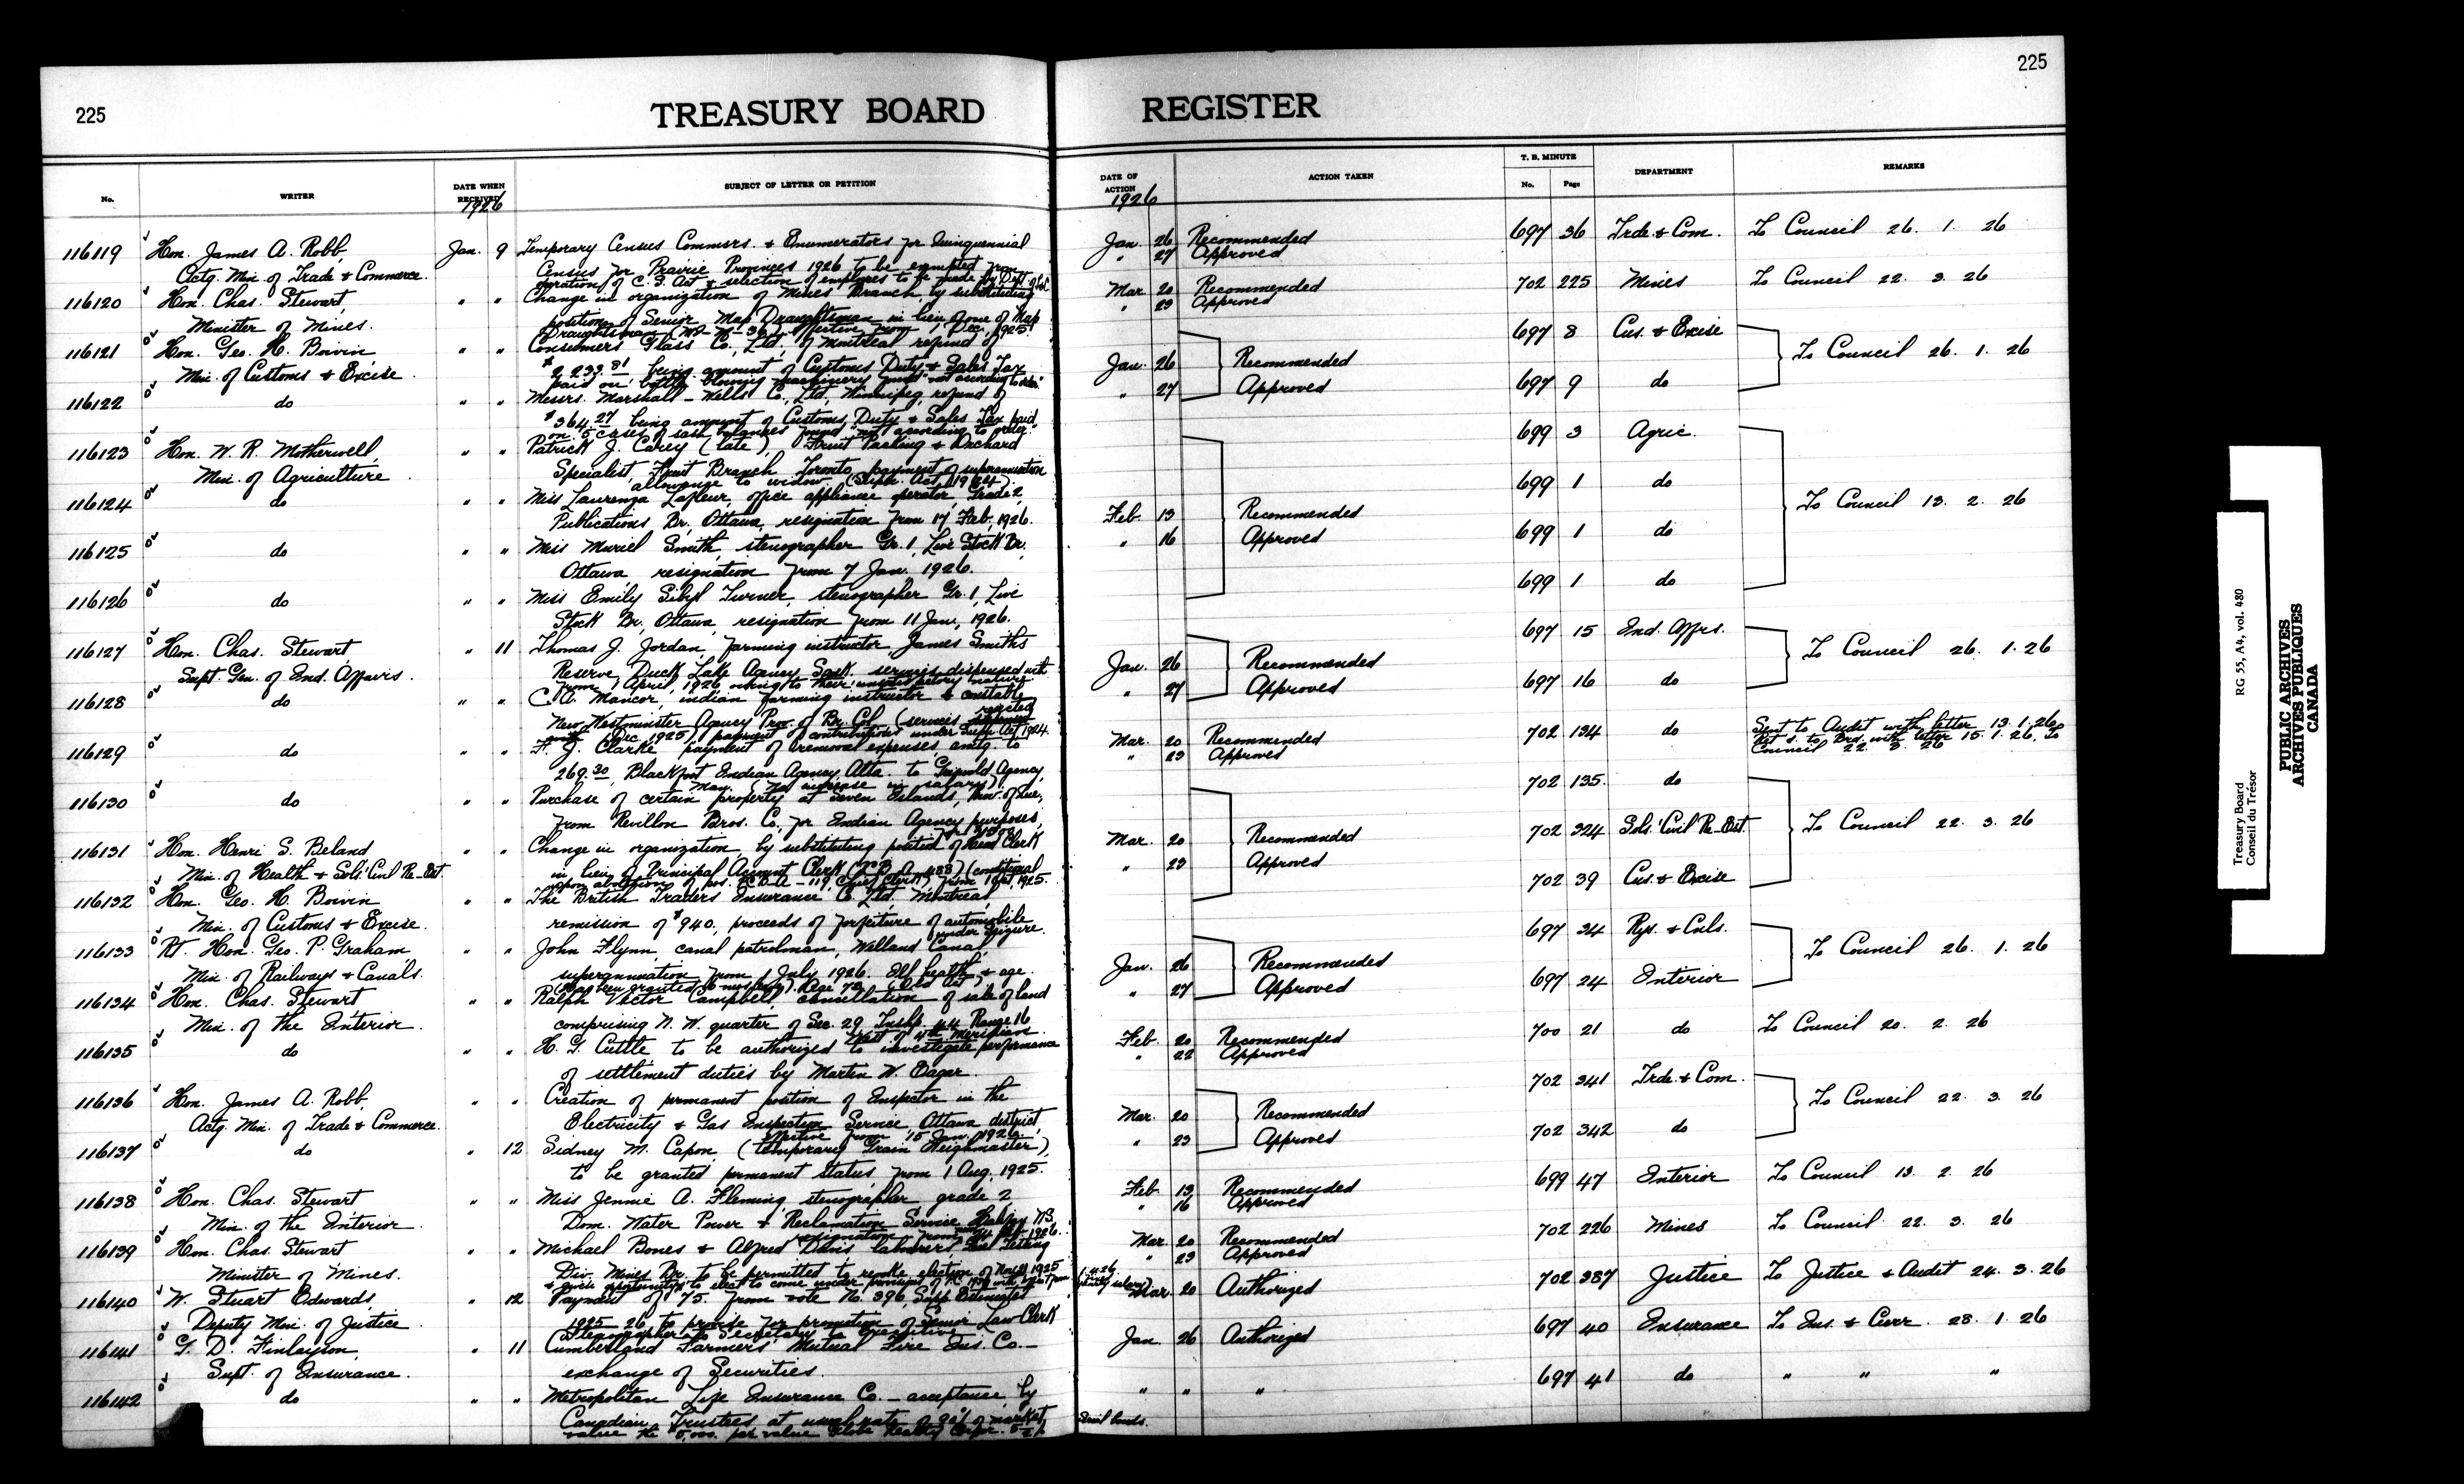 225
TREASURY BOARD
No.
WRITER
DATE WHEN RECEIVED
1926
SUBJECT OF LETTER OR PETITION
116119 Hon. James A. Robb, Jan. 9 Temporary Census Commrs. & Enumerators for Quinquennial
Actg. Min. of Trade & Commerce. Census for Prairie Provinces 1926 to be exempted from
operation of C. S. Act & selection of employees to be made by Dept. of
116120 Hon. Chas. Stewart, " " Change in organization of Mines Branch, by substituting
Minister of Mines. position of Senior Map Draughtsman in lieu of one of Map
Draughtsman (MS-M-36) effective from 1 Dec. 1925.
116121 Hon. Geo. H. Boivin, " " Consumers Glass Co., Ltd., of Montreal refund of
Min. of Customs & Excise. $2,233.81 being amount of Customs Duty & Sales Tax
paid on bottle blowing machinery found "not according to order"
116122 do " " Messrs. Marshall-Wells Co., Ltd., Winnipeg, refund of
$364.27 being amount of Customs Duty & Sales Tax paid
on 5 cases of sash balances found "not according to order."
116123 Hon. W. R. Motherwell, " " Patrick J. Carey (late), Fruit Packing & Orchard
Min. of Agriculture Specialist, Fruit Branch, Toronto, payment of superannuation
allowance to widow. (Super. Act, 1924).
116124 do " " Miss Laurenza Lafleur, office appliance operator, Grade 2,
Publications Br., Ottawa, resignation from 17 Feb., 1926.
116125 do " " Miss Muriel Smith, stenographer Gr. 1, Live Stock Br.
Ottawa, resignation from 7 Jan. 1926.
116126 do " " Miss Emily Sibyl Turner, stenographer Gr. 1, Live
Stock Br., Ottawa, resignation from 11 Jan., 1926.
116127 Hon. Chas. Stewart " 11 Thomas J. Jordan, farming instructor James Smiths
Supt. Gen. of Ind. Affairs. Reserve Duck Lake Agency Sask. services dispensed with
from 1 April, 1926 owing to their unsatisfactory nature.
116128 do " " C. A. Mancor, indian farming instructor & constable,
New Westminster Agency Prov. of Br. Col. (services
Dec. 1925), payment of contributions under Super. Act 1924.
116129 do " " F. J. Clarke payment of removal expenses amtg. to
269.30, Blackfoot Indian Agency, Alta. to Griswold Agency,
Man. (No increase in salary).
116130 do " " Purchase of certain property at Seven Islands, Prov. of Que.,
from Revillon Bros. Co., for Indian Agency purposes,
116131 Hon. Henri S. Beland " " Change in organization by substituting position of Head Clerk
Min. of Health & Sols.' Civil Re-Est. in lieu of Principal Account Clerk (conditional
upon abolition of pos. Chief Clerk) from 1 Oct. 1925.
116132 Hon. Geo. H. Boivin " " The British Traders Insurance Co. Ltd., Montreal,
Min. of Customs & Excise. remission of $940, proceeds of forfeiture of automobile
under seizure.
116133 Rt. Hon. Geo. P. Graham " " John Flynn, canal patrolman, Welland Canal,
Min. of Railways & Canals. superannuation from 1 July 1926. Ill health & age.
116134 Hon. Chas. Stewart " " Ralph Victor Campbell cancellation of sale of land
Min. of the Interior. comprising N. W. quarter of Sec. 29 Tnshp. 44 Range 16
West of 4th Meridian.
116135 do " " H. G. Cuttle to be authorized to investigate performance
of settlement duties by Martin W. Eagar.
116136 Hon. James A. Robb, " " Creation of permanent position of Inspector in the
Actg. Min. of Trade & Commerce. Electricity & Gas Inspection Service, Ottawa district,
effective from 15 Jan. 1926.
116137 do " 12 Sidney M. Capon, (temporary Grain Weighmaster),
to be granted permanent status, from 1 Aug. 1925.
116138 Hon. Chas. Stewart " " Miss Jennie A. Fleming, stenographer, grade 2
Min. of the Interior. Dom. Water Power & Reclamation Service, Halifax N.S.
116139 Hon. Chas. Stewart " " Michael Bones & Alfred Davis labourers, Fuel Testing
Minister of Mines. Div. Mines Br. to be permitted to revoke election of Nov. 1925
116140 W. Stuart Edwards, " 12 Payment of $75. from vote No. 396, Supp. Estimates
Deputy Min. of Justice. 1925-26 to provide for promotion of Senior Law Clerk
Stenographer to Secretary to Executive
116141 G. D. Finlayson, " 11 Cumberland Farmers' Mutual Fire Ins. Co.—
Supt. of Insurance. exchange of Securities.
116142 do " " Metropolitan Life Insurance Co. — acceptance by
Canadian Trustees at usual rate of 90% of market
225
REGISTER
DATE OF ACTION
1926
ACTION TAKEN
T. B. MINUTE
No. Page
DEPARTMENT
REMARKS
Jan. 26 Recommended 697 36 Trde. & Com. To Council 26. 1. 26
" 27 Approved
Mar. 20 Recommended 702 225 Mines To Council 22. 3. 26
" 23 Approved
697 8 Cus. & Excise
Jan. 26 Recommended To Council 26. 1. 26
" 27 Approved 697 9 do
699 3 Agric.
699 1 do
Feb. 13 Recommended To Council 13. 2. 26
" 16 Approved 699 1 do
699 1 do
697 15 Ind. Affrs.
Jan. 26 Recommended To Council 26. 1. 26
" 27 Approved 697 16 do
Mar. 20 Recommended 702 134 do Sent to Audit with letter 13.1.26
" 23 Approved Ret'd. to Brd. with letter 15.1.26. To
Council 22. 3. 26
702 135. do
Mar. 20 Recommended 702 324 Sols.' Civil Re-Est. To Council 22. 3. 26
" 23 Approved
702 39 Cus. & Excise
697 34 Rys. & Cnls.
Jan. 26 Recommended To Council 26. 1. 26
" 27 Approved 697 24 Interior
Feb. 20 Recommended 700 21 do To Council 20. 2. 26
" 22 Approved
702 341 Trde. & Com.
Mar. 20 Recommended To Council 22. 3. 26
" 23 Approved 702 342 do
Feb. 13 Recommended 699 47 Interior To Council 13. 2. 26
" 16 Approved
Mar. 20 Recommended 702 226 Mines To Council 22. 3. 26
" 23 Approved
Mar. 20 Authorized 702 387 Justice To Justice & Audit 24. 3. 26
Jan. 26 Authorized 697 40 Insurance To Ins. & Curr. 28. 1. 26
" " " 697 41 do " " "
Treasury Board RG 55, A4, vol. 480
Conseil du Trésor
PUBLIC ARCHIVES
ARCHIVES PUBLIQUES
CANADA